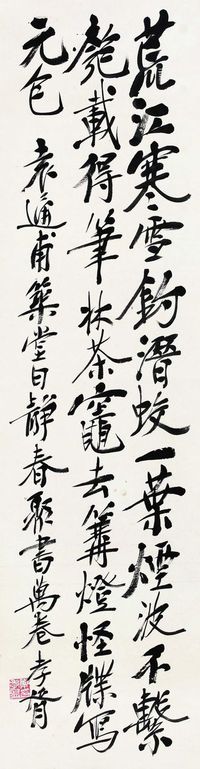 荒江寒雪釣潛蛟一葉煙波不繫
匏載得筆牀茶竈去篝燈怪牒寫
元包 袁通甫築堂曰靜春聚書萬卷孝胥